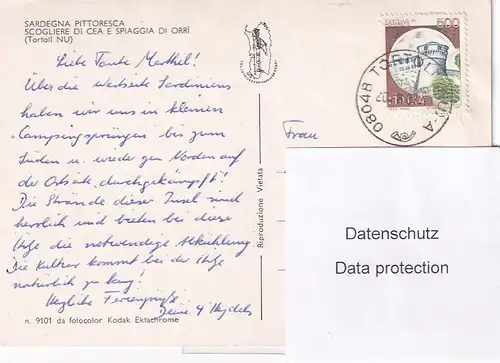 SARDEGNA PITTORESCA
SCOGLIERE DI CEA E SPIAGGIA DI ORRÌ
(Tortolì NU)
Liebe Tante Marthel!
Über die Westseite Sardiniens
haben wir uns in kleinen
"Campingsprüngen" bis zum
Süden u. wieder zum Norden auf
der Ostseite "durchgekämpft"!
Die Strände dieser Insel sind
herrlich und bieten bei dieser
Hitze die notwendige Abkühlung.
Die Kultur kommt bei der Hitze
natürlich zu kurz!
Herzliche Feriengrüße
Deine 4
n. 9101 da fotocolor Kodak Ektachrome
Riproduzione Vietata
500
08048 TORTOLI
Frau
Datenschutz
Data protection